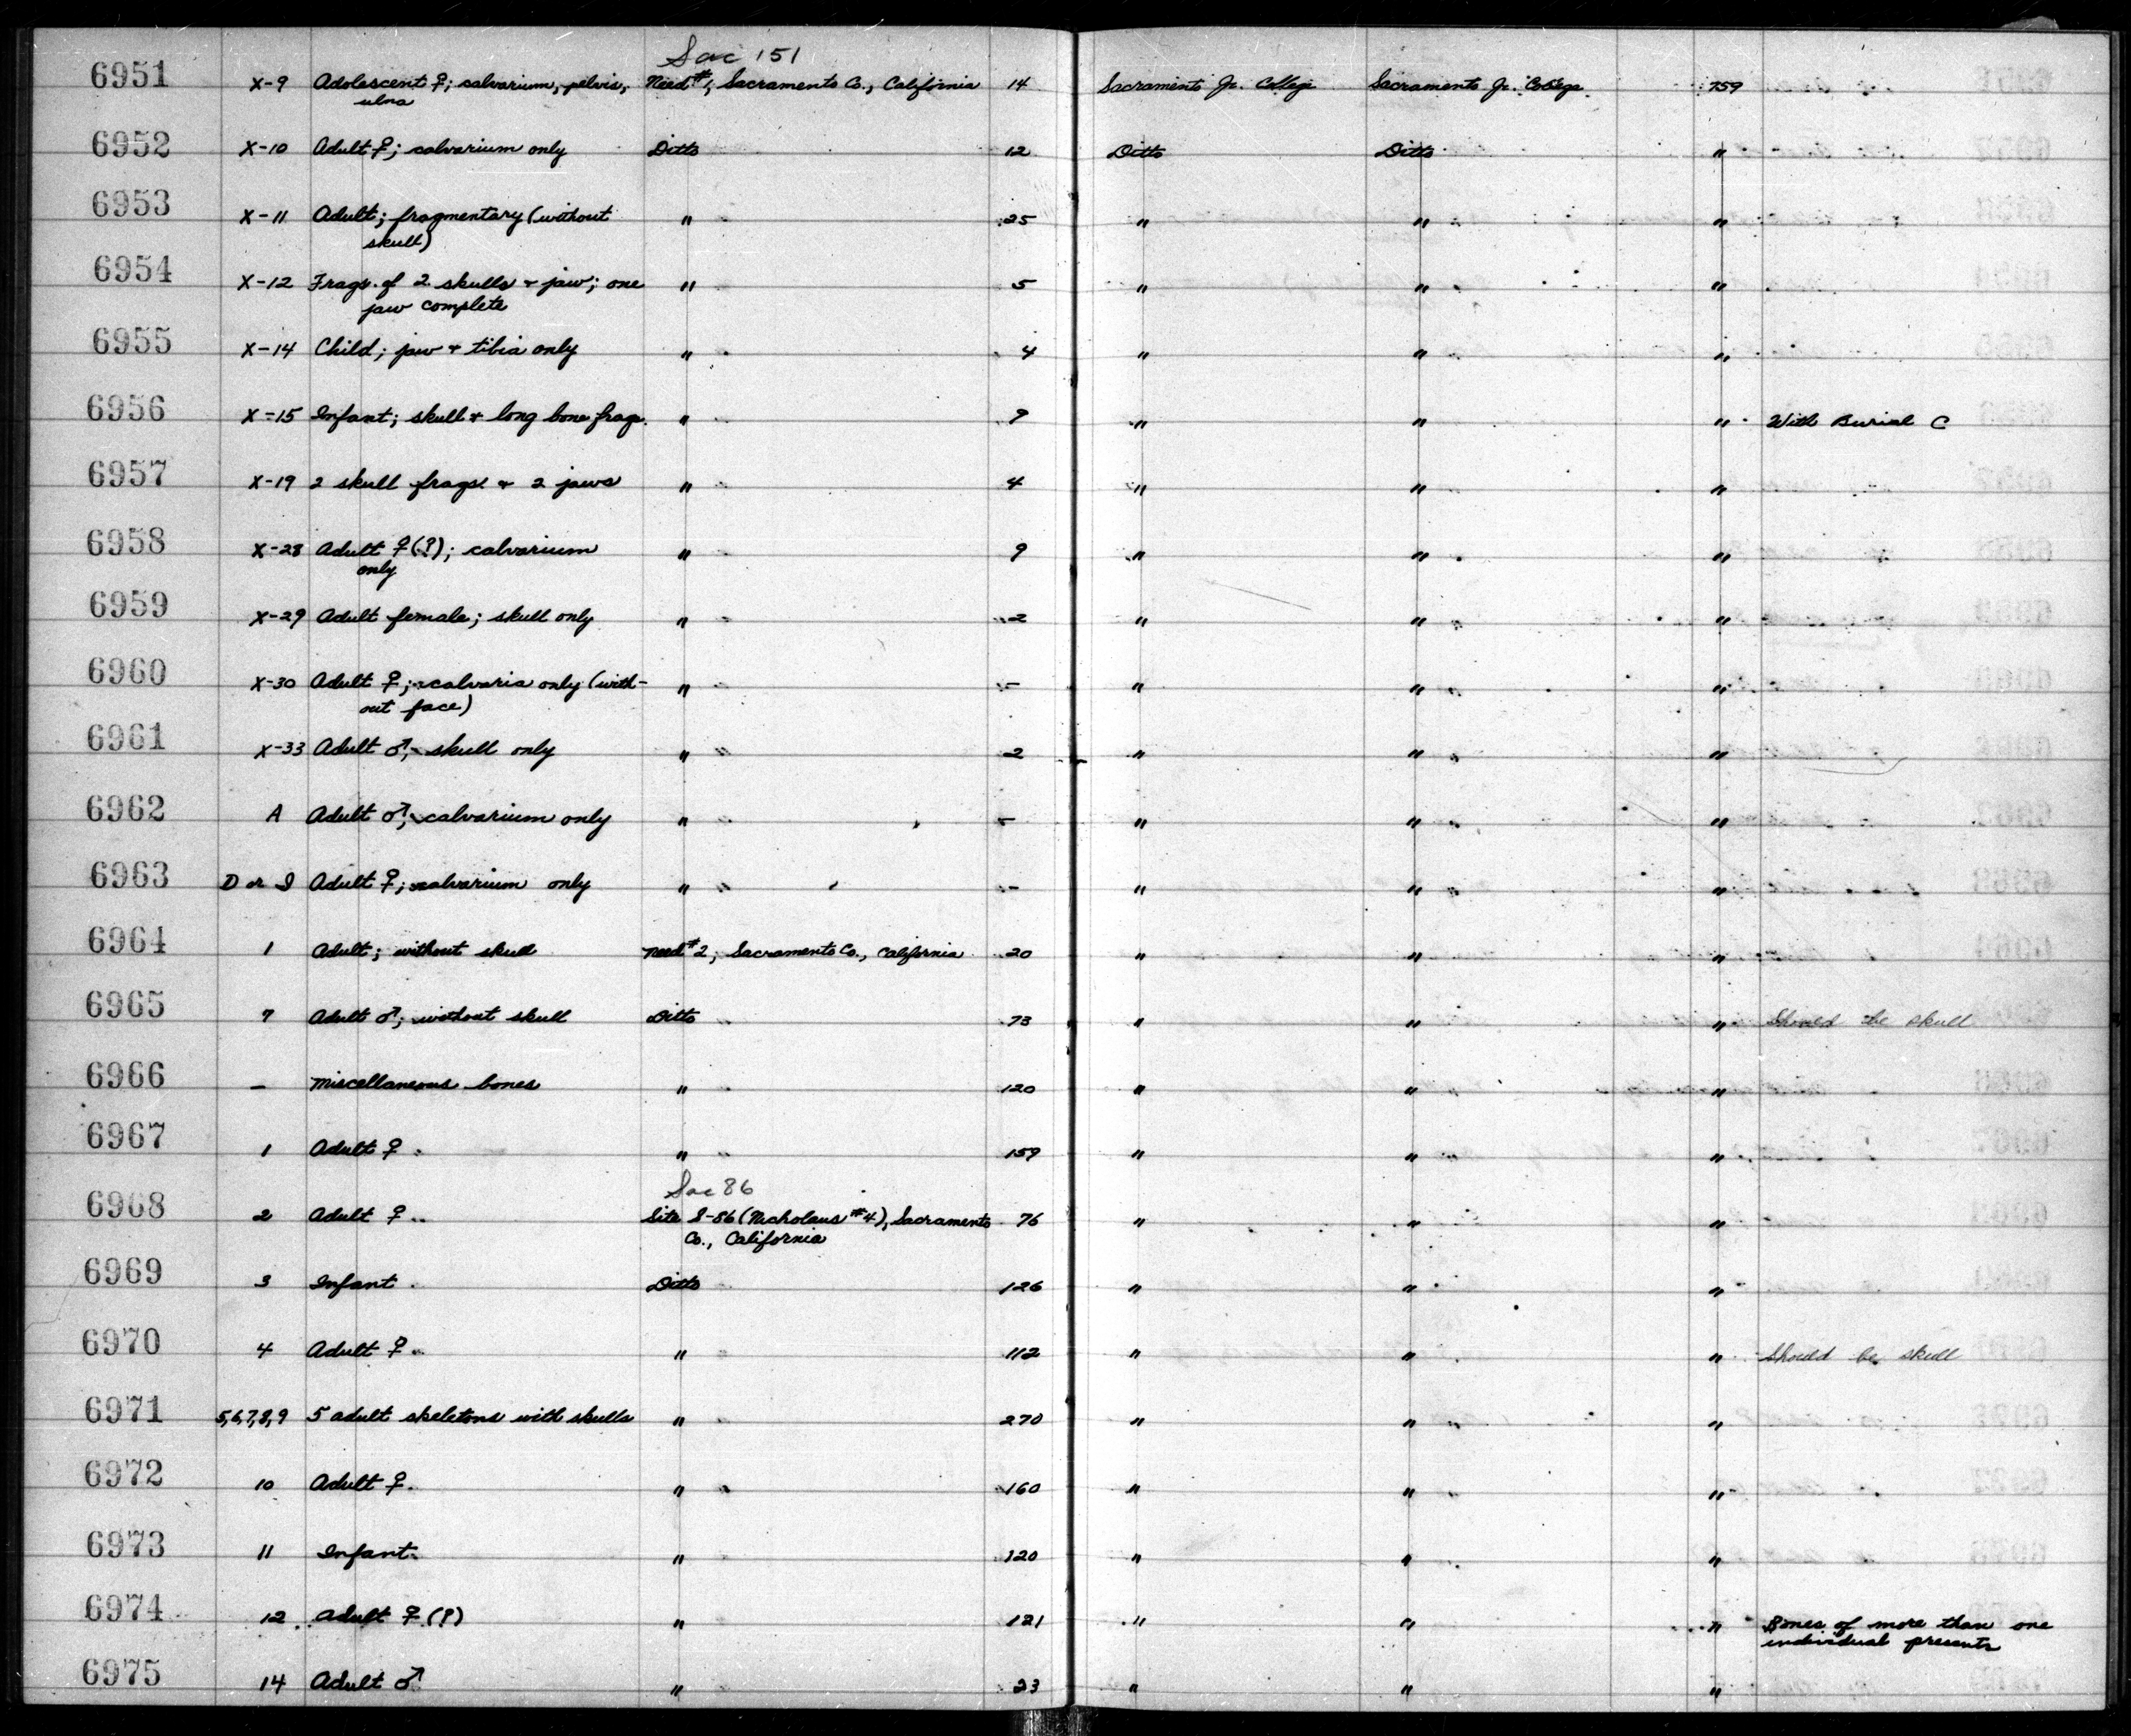 Sac 151
6951 X-9 Adolescent ♀; calvarium, pelvis, Need #1, Sacramento Co., California 14 Sacramento Jr. College Sacramento Jr. College 759
ulna
6952 X-10 Adult ♀; calvarium only Ditto 12 Ditto Ditto "
6953 X-11 Adult; fragmentary (without " 25 " " "
skull)
6954 X-12 Frags. of 2 skulls + jaw; one " 5 " " "
jaw complete
6955 X-14 Child; jaw + tibia only " 4 " " "
6956 X-15 Infant; skull + long bone frags. " 9 " " " With Burial C
6957 X-19 2 skull frags. + 2 jaws " 4 " " "
6958 X-28 Adult ♀(?); calvarium " 9 " " "
only
6959 X-29 Adult female; skull only " 2 " " "
6960 X-30 Adult ♀; calvaria only (with- " - " " "
out face)
6961 X-33 Adult ♂; skull only " 2 " " "
6962 A Adult ♂; calvarium only " - " " "
6963 D or I Adult ♀; calvarium only " - " " "
6964 1 Adult; without skull Need #2; Sacramento Co., California 20 " " "
6965 7 Adult ♂; without skull Ditto 73 " " " Should be skull
6966 - Miscellaneous bones " 120 " " "
6967 1 Adult ♀ " 159 " " "
Sac 86
6968 2 Adult ♀ Site S-86 (Nicholaus #4), Sacramento 76 " " "
Co., California
6969 3 Infant Ditto 126 " " "
6970 4 Adult ♀ " 112 " " " Should be skull
6971 5,6,7,8,9 5 adult skeletons with skulls " 270 " " "
6972 10 Adult ♀ " 160 " " "
6973 11 Infant " 120 " " "
6974 12 Adult ♀ (?) " 121 " " " Bones of more than one
individual present
6975 14 Adult ♂ " 23 " " "